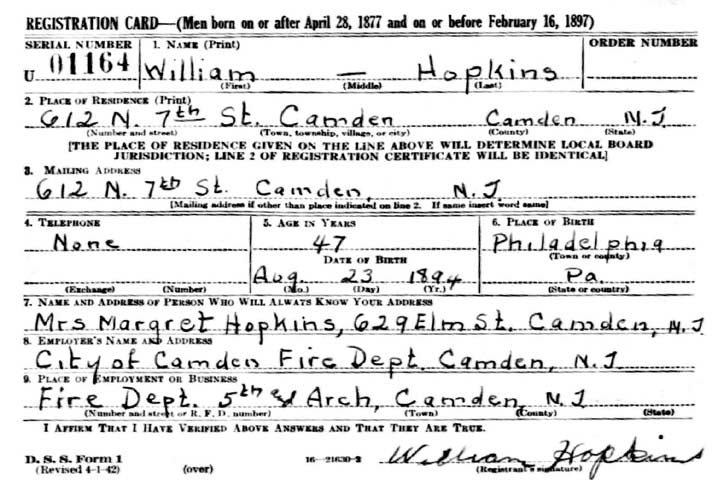 REGISTRATION CARD—(Men born on or after April 28, 1877 and on or before February 16, 1897)
SERIAL NUMBER 1. NAME (Print) ORDER NUMBER
U 01164 William — Hopkins
(First) (Middle) (Last)
2. PLACE OF RESIDENCE (Print)
612 N. 7th St. Camden Camden N.J
(Number and street) (Town, township, village, or city) (County) (State)
[THE PLACE OF RESIDENCE GIVEN ON THE LINE ABOVE WILL DETERMINE LOCAL BOARD
JURISDICTION; LINE 2 OF REGISTRATION CERTIFICATE WILL BE IDENTICAL]
3. MAILING ADDRESS
612 N. 7th St. Camden, N.J
[Mailing address if other than place indicated on line 2. If same insert word same]
4. TELEPHONE 5. AGE IN YEARS 6. PLACE OF BIRTH
None 47 Philadelphia
DATE OF BIRTH (Town or county)
Aug. 23 1894 Pa.
(Exchange) (Number) (Mo.) (Day) (Yr.) (State or country)
7. NAME AND ADDRESS OF PERSON WHO WILL ALWAYS KNOW YOUR ADDRESS
Mrs Margret Hopkins, 629 Elm St. Camden, N.J
8. EMPLOYER'S NAME AND ADDRESS
City of Camden Fire Dept. Camden, N.J
9. PLACE OF EMPLOYMENT OR BUSINESS
Fire Dept. 5th & Arch, Camden, N.J
(Number and street or R. F. D. number) (Town) (County) (State)
I AFFIRM THAT I HAVE VERIFIED ABOVE ANSWERS AND THAT THEY ARE TRUE.
D. S. S. Form 1
(Revised 4-1-42) (over) 16—21630-2 William Hopkins
(Registrant's signature)